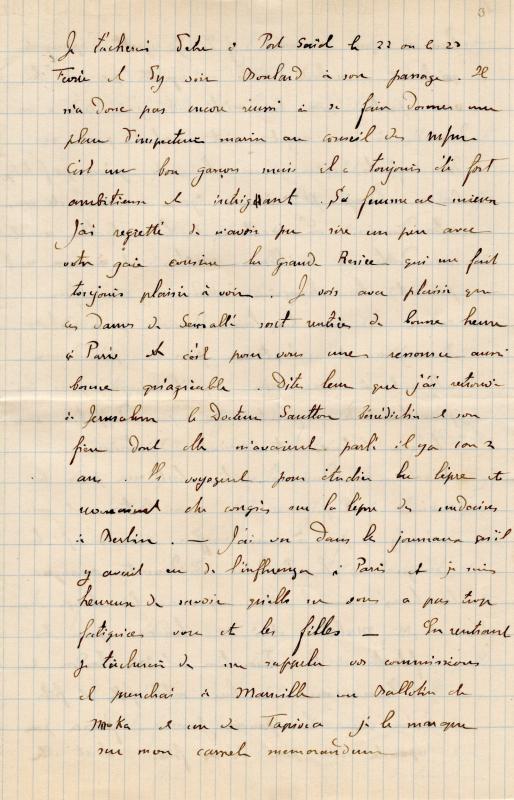 3
Je tâcherai d'etre à Port Saïd le 22 ou le 23
Fevrier et d'y voir Boulard à son passage. Il
n'a donc pas encore réussi à se faire donner une
place d'inspecteur marin au conseil des
C'est un bon garçon mais il a toujours été fort
ambitieux et intriguant. Sa femme est mieux
J'ai regretté de n'avoir pu rire un peu avec
votre gaie cousine la grande qui me fait
toujours plaisir à voir. Je vois avec plaisir que
ces Dames de sont rentrées de bonne heure
à Paris et c'est pour vous une ressource aussi
bonne qu'agréable. Dites leur que j'ai retrouvé
à Jerusalem le Docteur Sautton bénédictin et son
frere dont elles m'avaient parlé il y a 1 ou 2
ans. Ils voyagent pour étudier la lèpre et
du congrès sur la lèpre des médecins
à Berlin. — J'ai vu dans les journaux qu'il
y avait eu de l'influenza à Paris et je suis
heureux de savoir qu'elle ne vous a pas trop
fatiguées vous et les filles — En rentrant
je tâcherai de me rappeler vos commissions
et prendrai à Marseille un Ballotin de
Moka et un de Tapioca je le marque
sur mon carnet memorandum